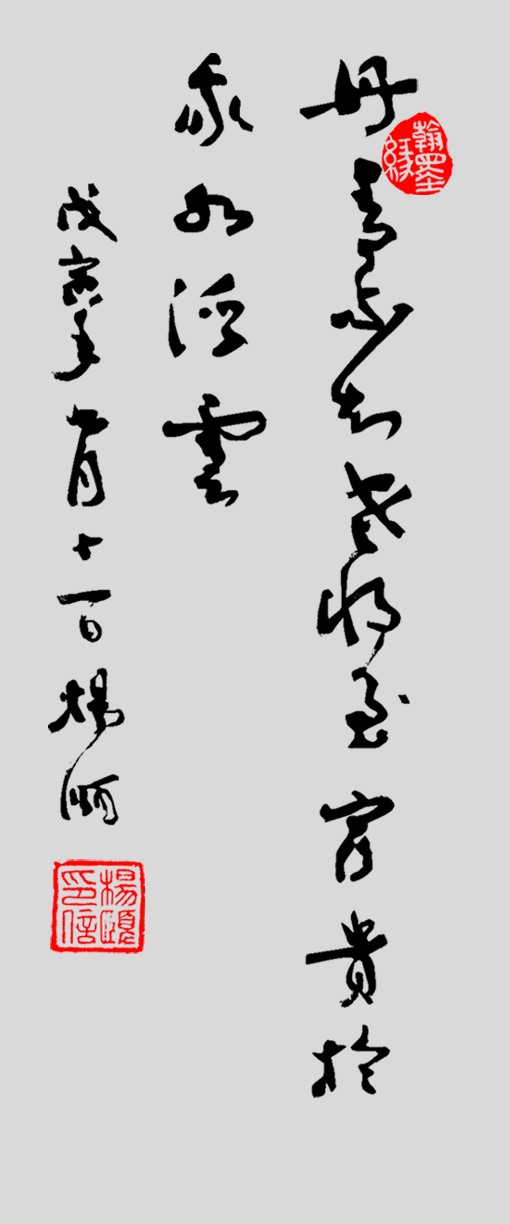 翰墨緣
丹青不知老將至富貴於
我如浮雲
戊寅年七月十一日楊頤
楊頤印信